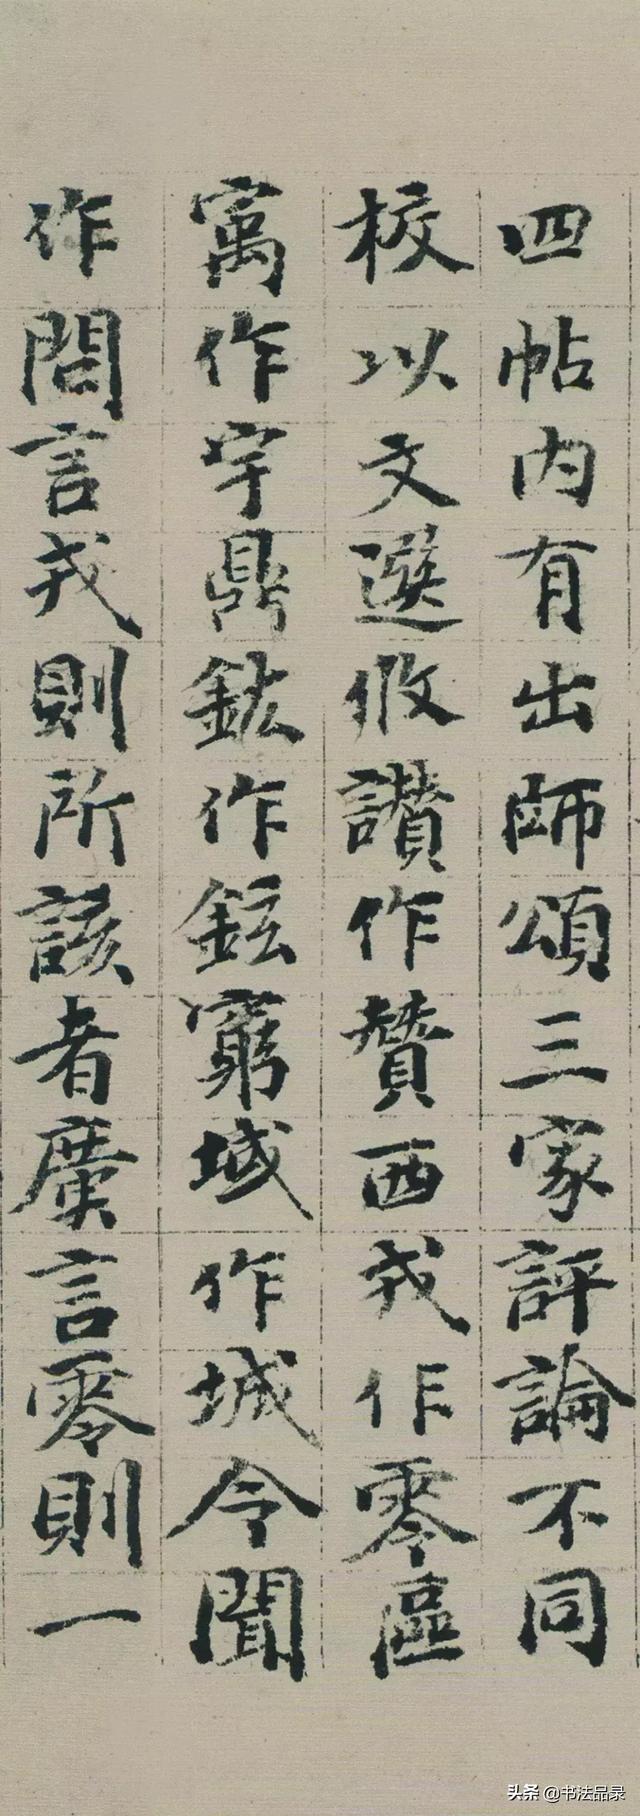 四帖内有出師頌三家評論不同
校以文選攸讚作贊西戎作零區
寓作宇鼎鈜作鉉窮域作城令聞
作問言戎則所該者廣言零則一
头条 @书法品录